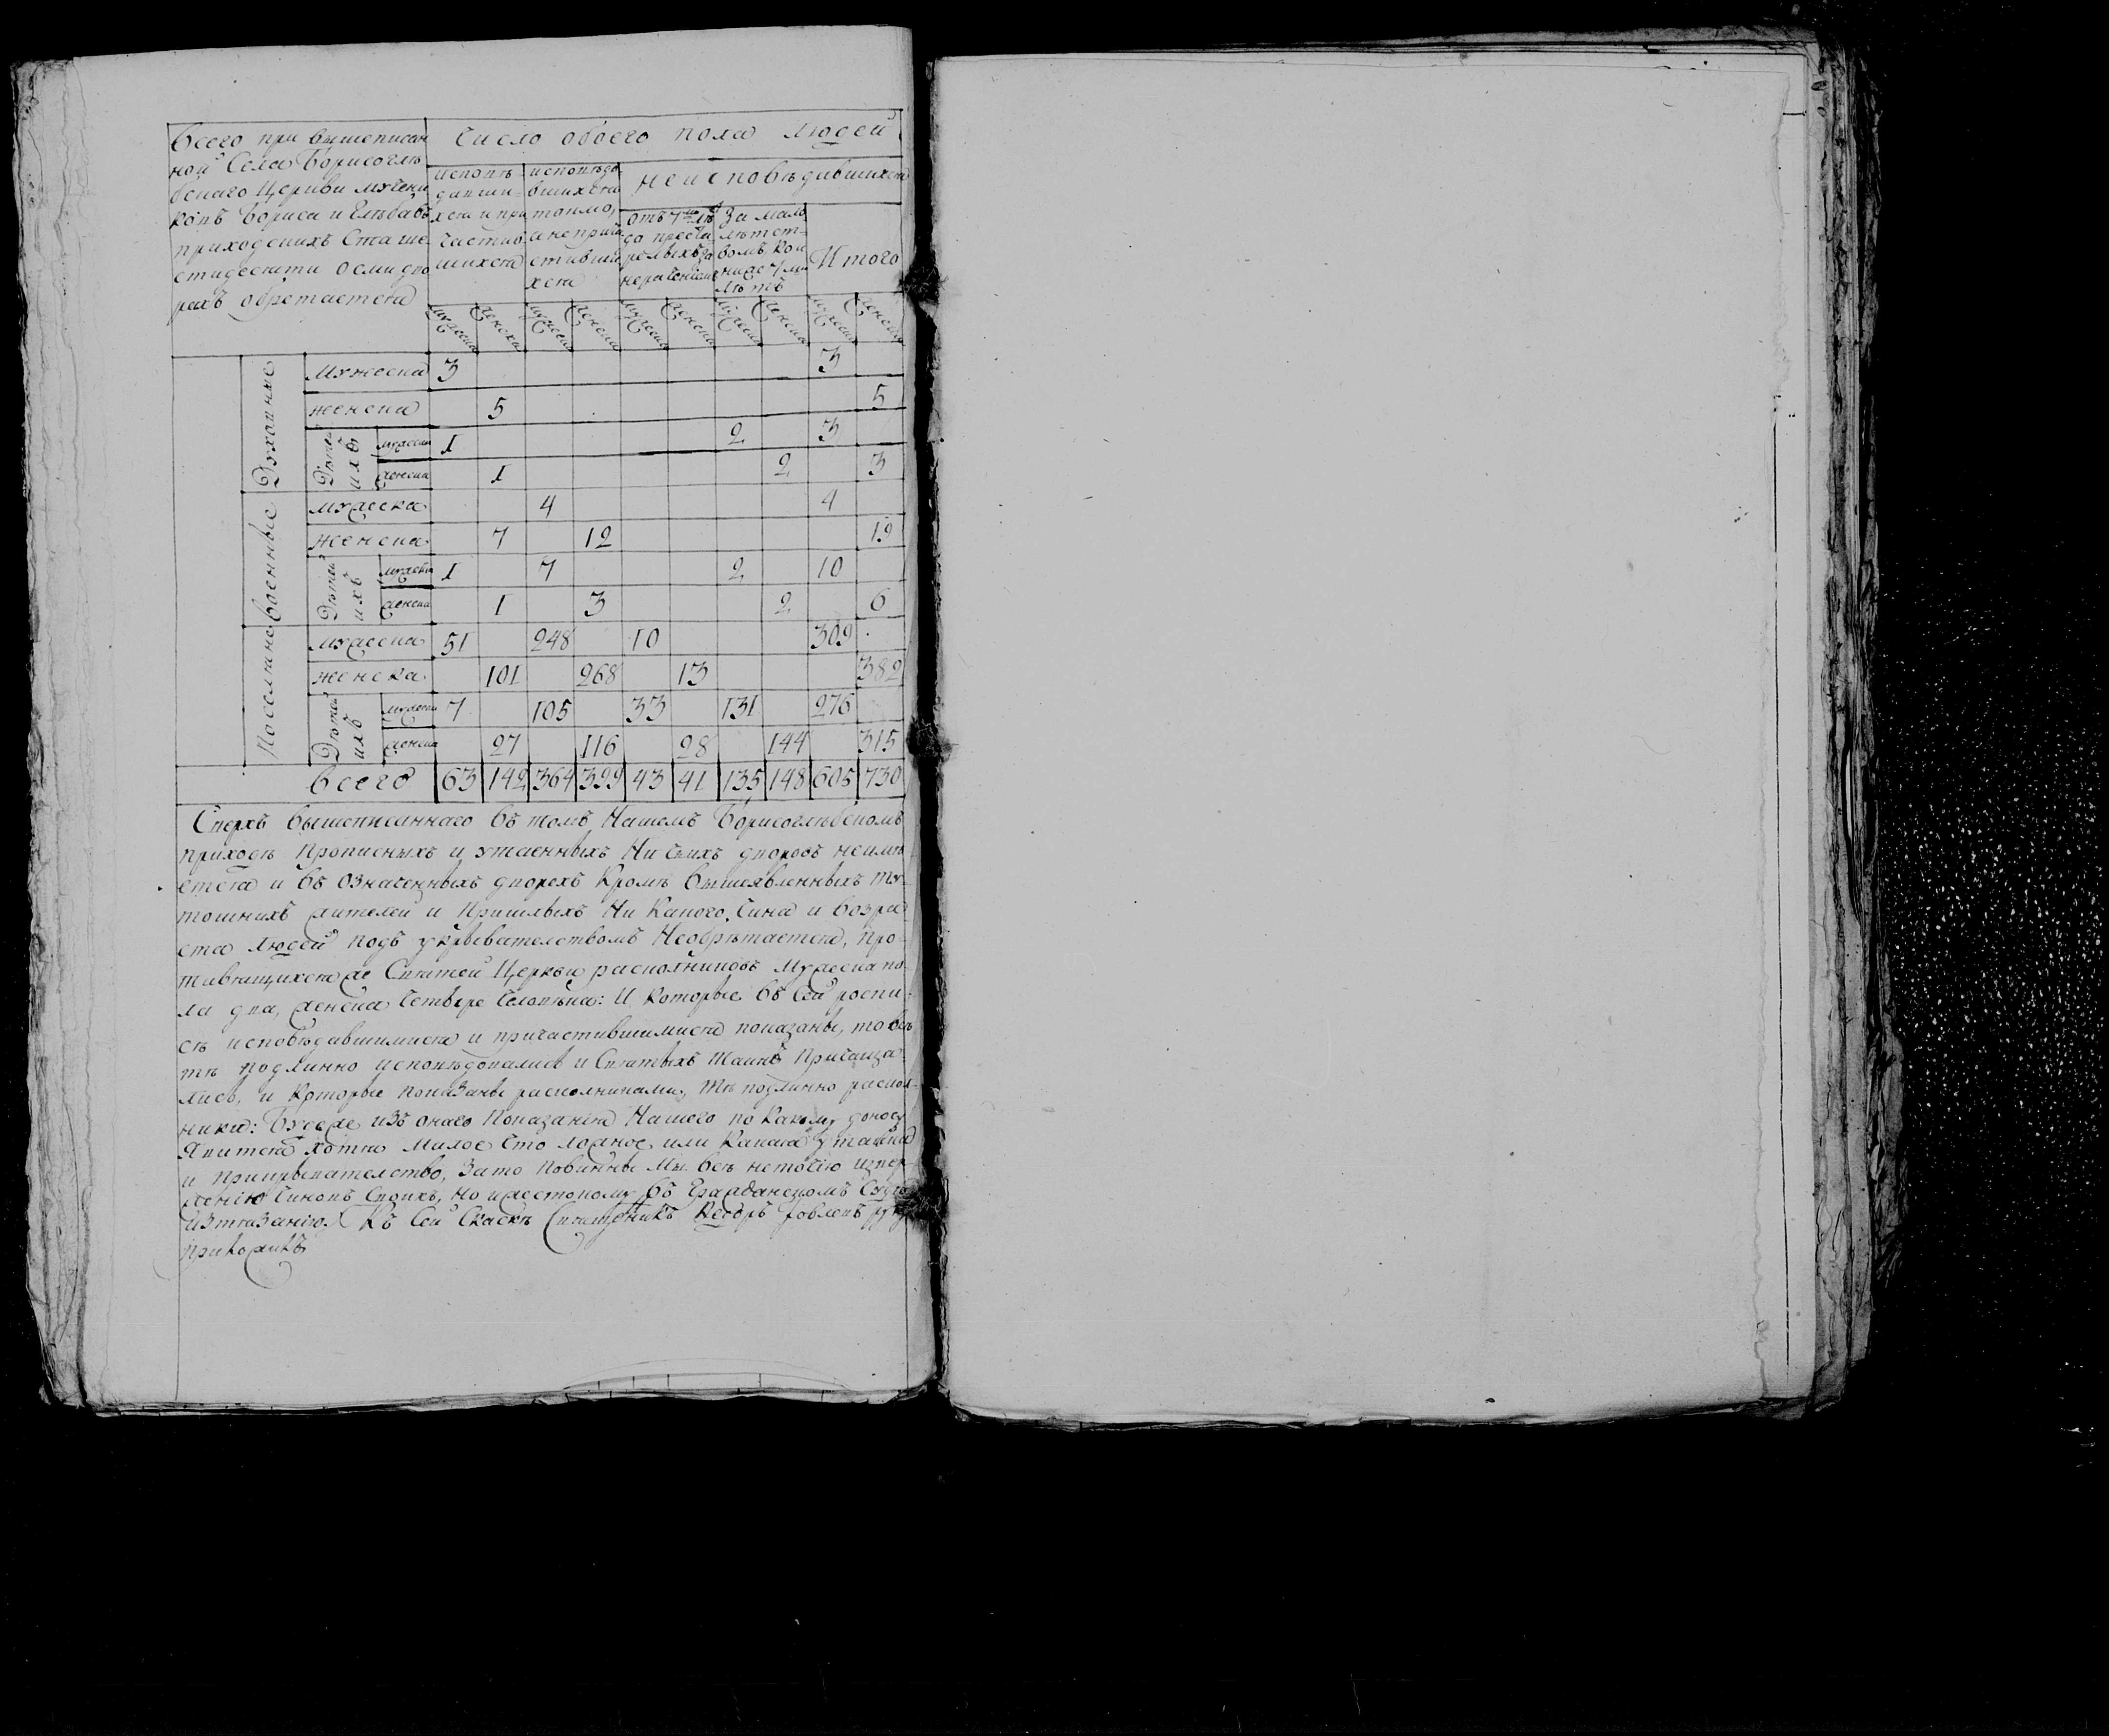 Всего при вышеписан
ной Села Борисоглѣ
бскаго Церкви мучени
ковъ Бориса и Глѣба въ
приходскихъ Сташе
стидесяти осми дво
рахъ обретается
Число обоего пола Людей
исповѣ-
давши-
хся и при
частив-
шихся
исповѣдо
вшихся
токмо,
и неприча
стивши
хся
неисповѣдавшихся
отъ 7ми лѣ
до преста
релыхъ за
нерачениемъ
За мало
лѣтст-
вомъ кои
ниже 7ми
лѣтъ
Итого
мужеска женска мужеска женска мужеска женска мужеска женска мужеска женска
Духовные
мужеска 3 3
женска 5 5
Дѣтей ихъ
мужеска 1 2 3
женска 1 2 3
военные
мужеска 4 4
женска 7 12 19
Дѣтей ихъ
мужеска 1 7 2 10
женска 1 3 2 6
Поселяне
мужеска 51 248 10 309
женска 101 268 13 382
Дѣтей ихъ
мужеска 7 105 33 131 276
женска 27 116 28 144 315
всего 63 142 364 399 43 41 135 148 605 730
Сверхъ вышеписаннаго въ томъ Нашемъ Борисоглѣбскомъ
приходѣ прописныхъ и утаенныхъ Ни чьихъ дворовъ неимѣ
ется и въ означенныхъ дворехъ Кромѣ вышеявленныхъ ту-
тошнихъ жителей и Пришлыхъ Ни Какого чина и возра
ста Людей подъ укрывателствомъ Необрѣтается, про-
тивящихся же Святей Церкви расколниковъ Мужеска по-
ла два, женска четыре человѣка: И Которые въ Сей роспи-
сѣ исповѣдавшимися и причастившимися показаны, то всѣ
тѣ подлинно исповѣдовались и Святыхъ Таинъ Причаща-
лись, и Которые показаны расколниками, тѣ подлинно раскол-
ники: Буде же изъ онаго Показания Нашего по Какому доносу
Явится хотя малое Что ложное или Какая утайка
и прикрывателство, Зато повинны мы всѣ неточию извер-
жению чиновъ Своихъ, но и жестокому въ Гражданскомъ Судѣ
изтязанию. Къ Сей Сказкѣ Священникъ руку
приложилъ